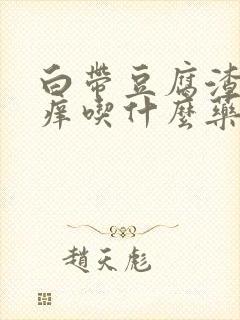 白帶豆腐渣
痒喫什麼藥
趙天彪